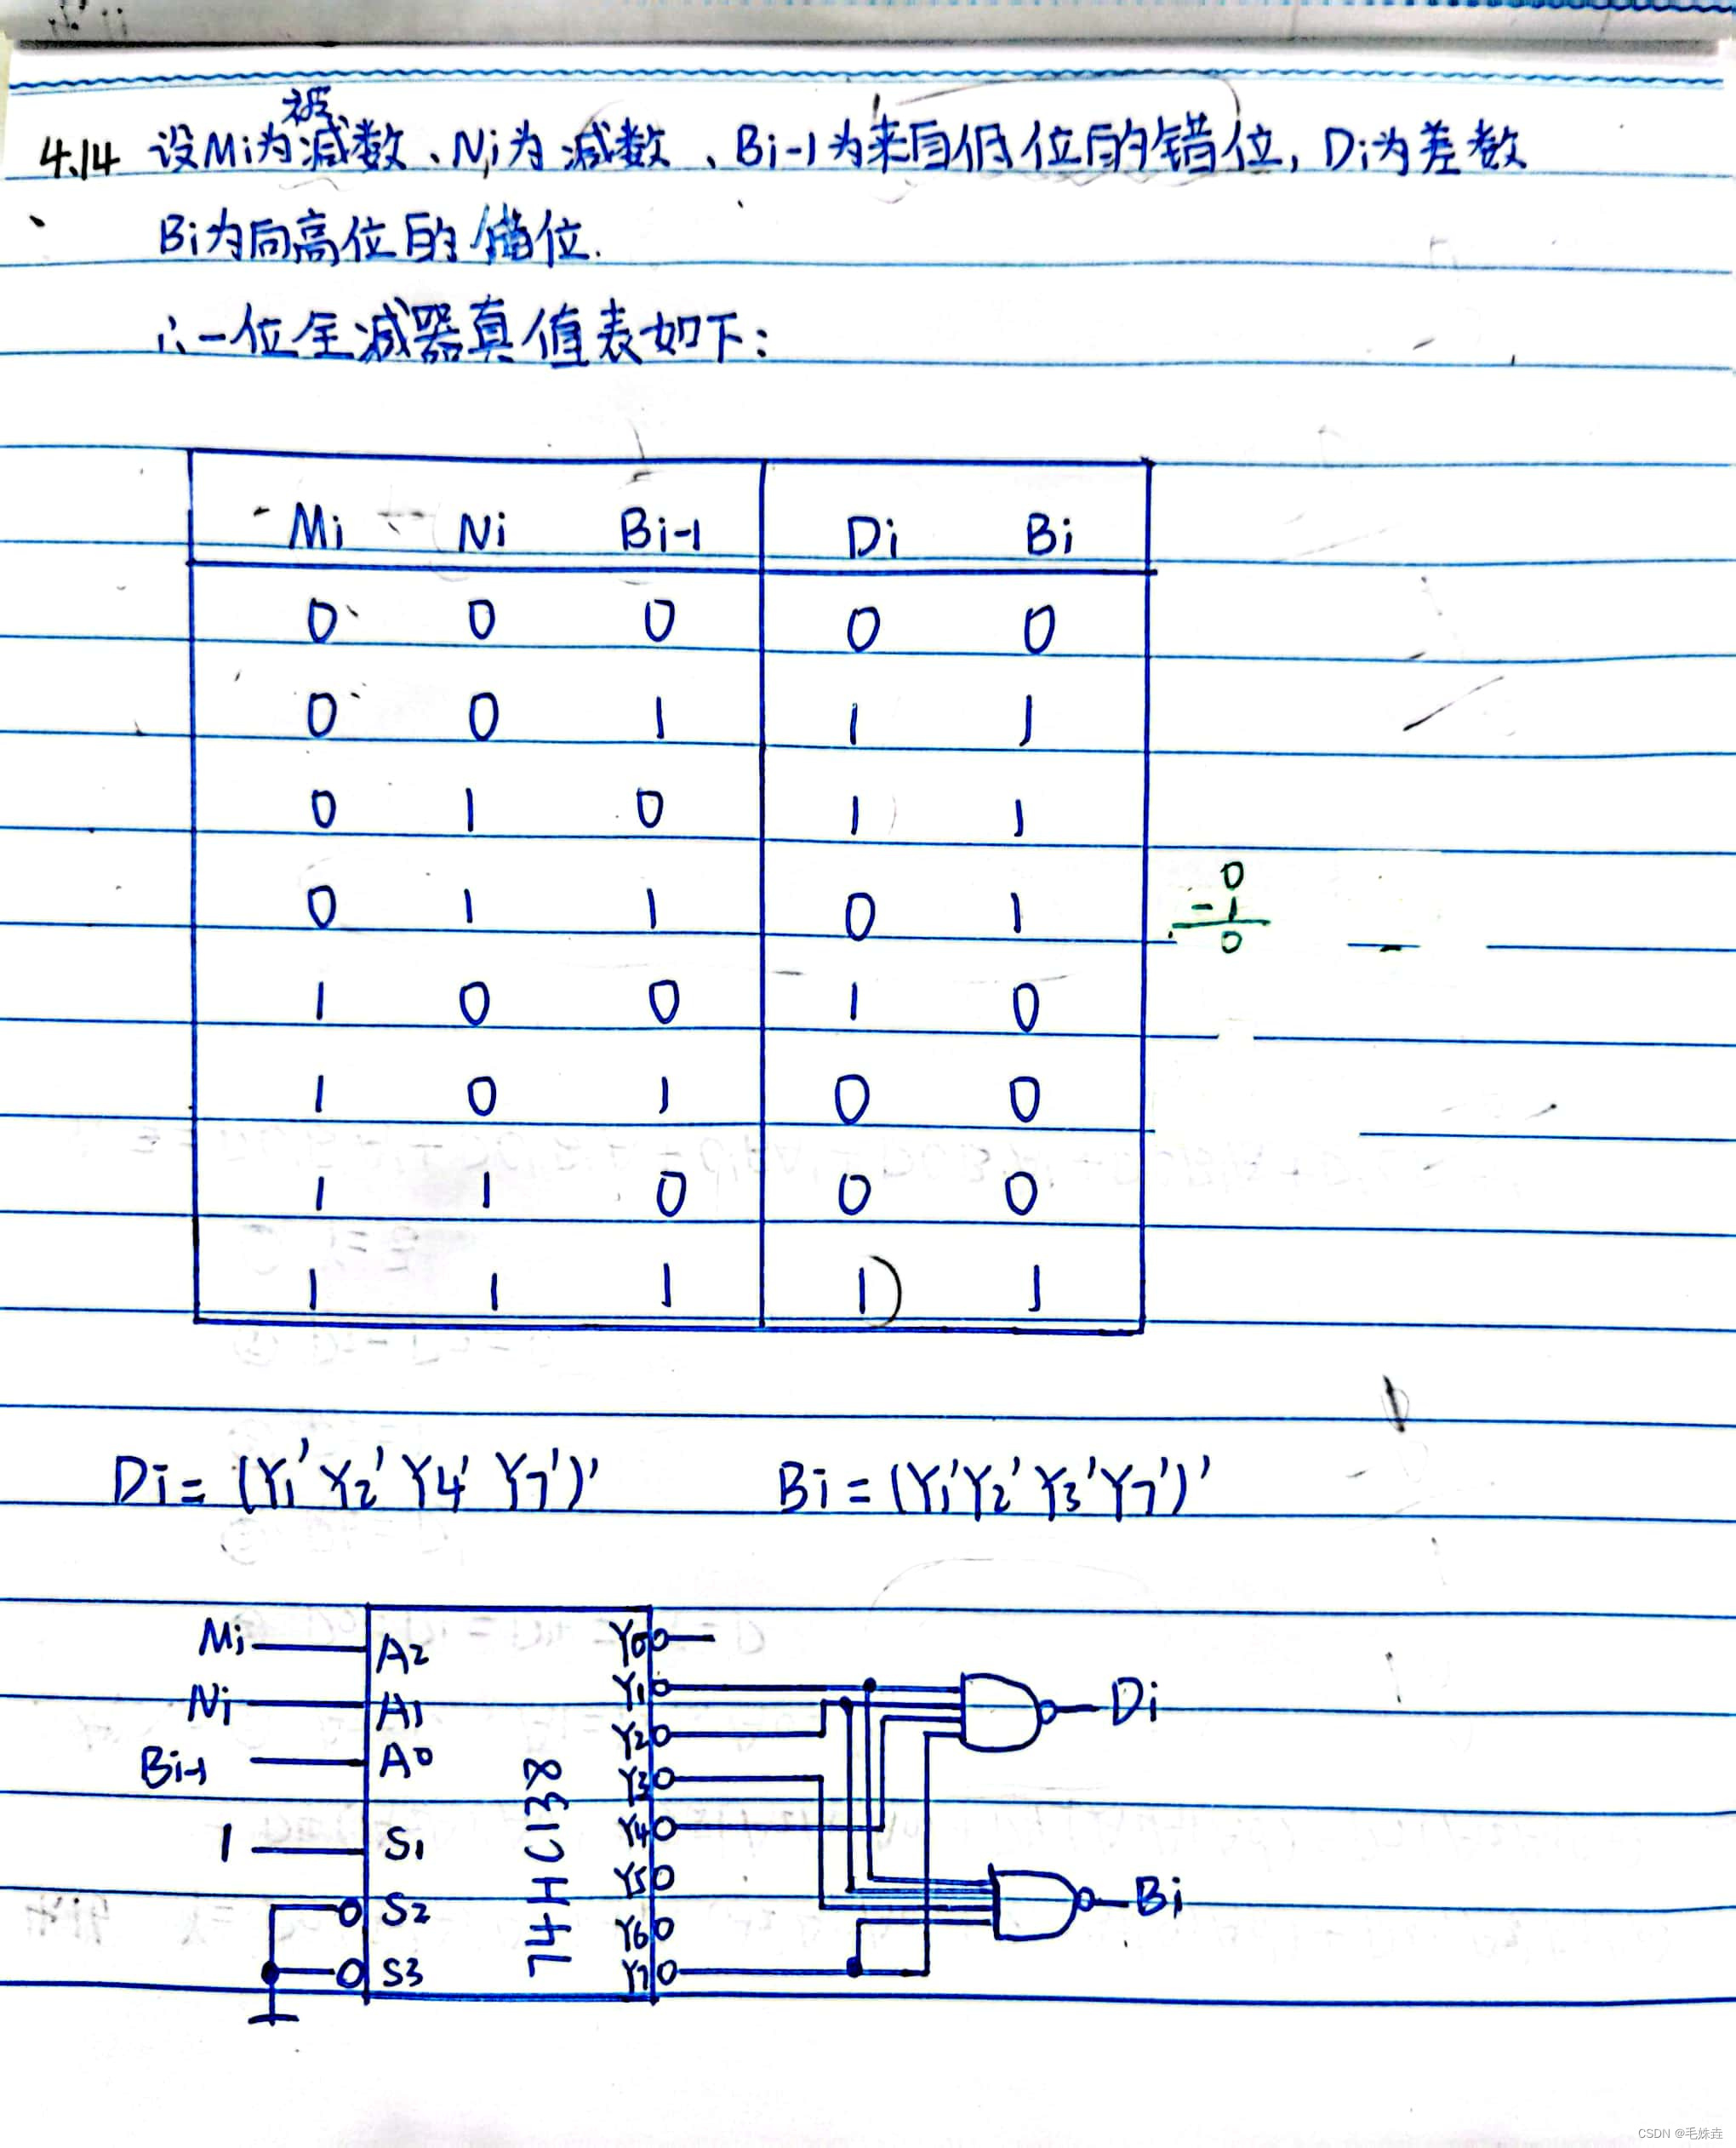 被
4.14 设Mi为减数、Ni为减数、Bi-1为来自低位的错位,Di为差数
Bi为向高位的借位.
∴一位全减器真值表如下:
Mi Ni Bi-1 Di Bi
0 0 0 0 0
0 0 1 1 1
0 1 0 1 1
0 1 1 0 1
0
-1
0
1 0 0 1 0
1 0 1 0 0
1 1 0 0 0
1 1 1 1) 1
Di=(Y1'Y2'Y4'Y7')' Bi=(Y1'Y2'Y3'Y7')'
Mi A2 Y0
Y1
Ni A1 Di
Y2
Bi-1 A0
Y3
74HC138
Y4
1 S1
Y5
Bi
S2
Y6
S3 Y7
CSDN @毛姝垚